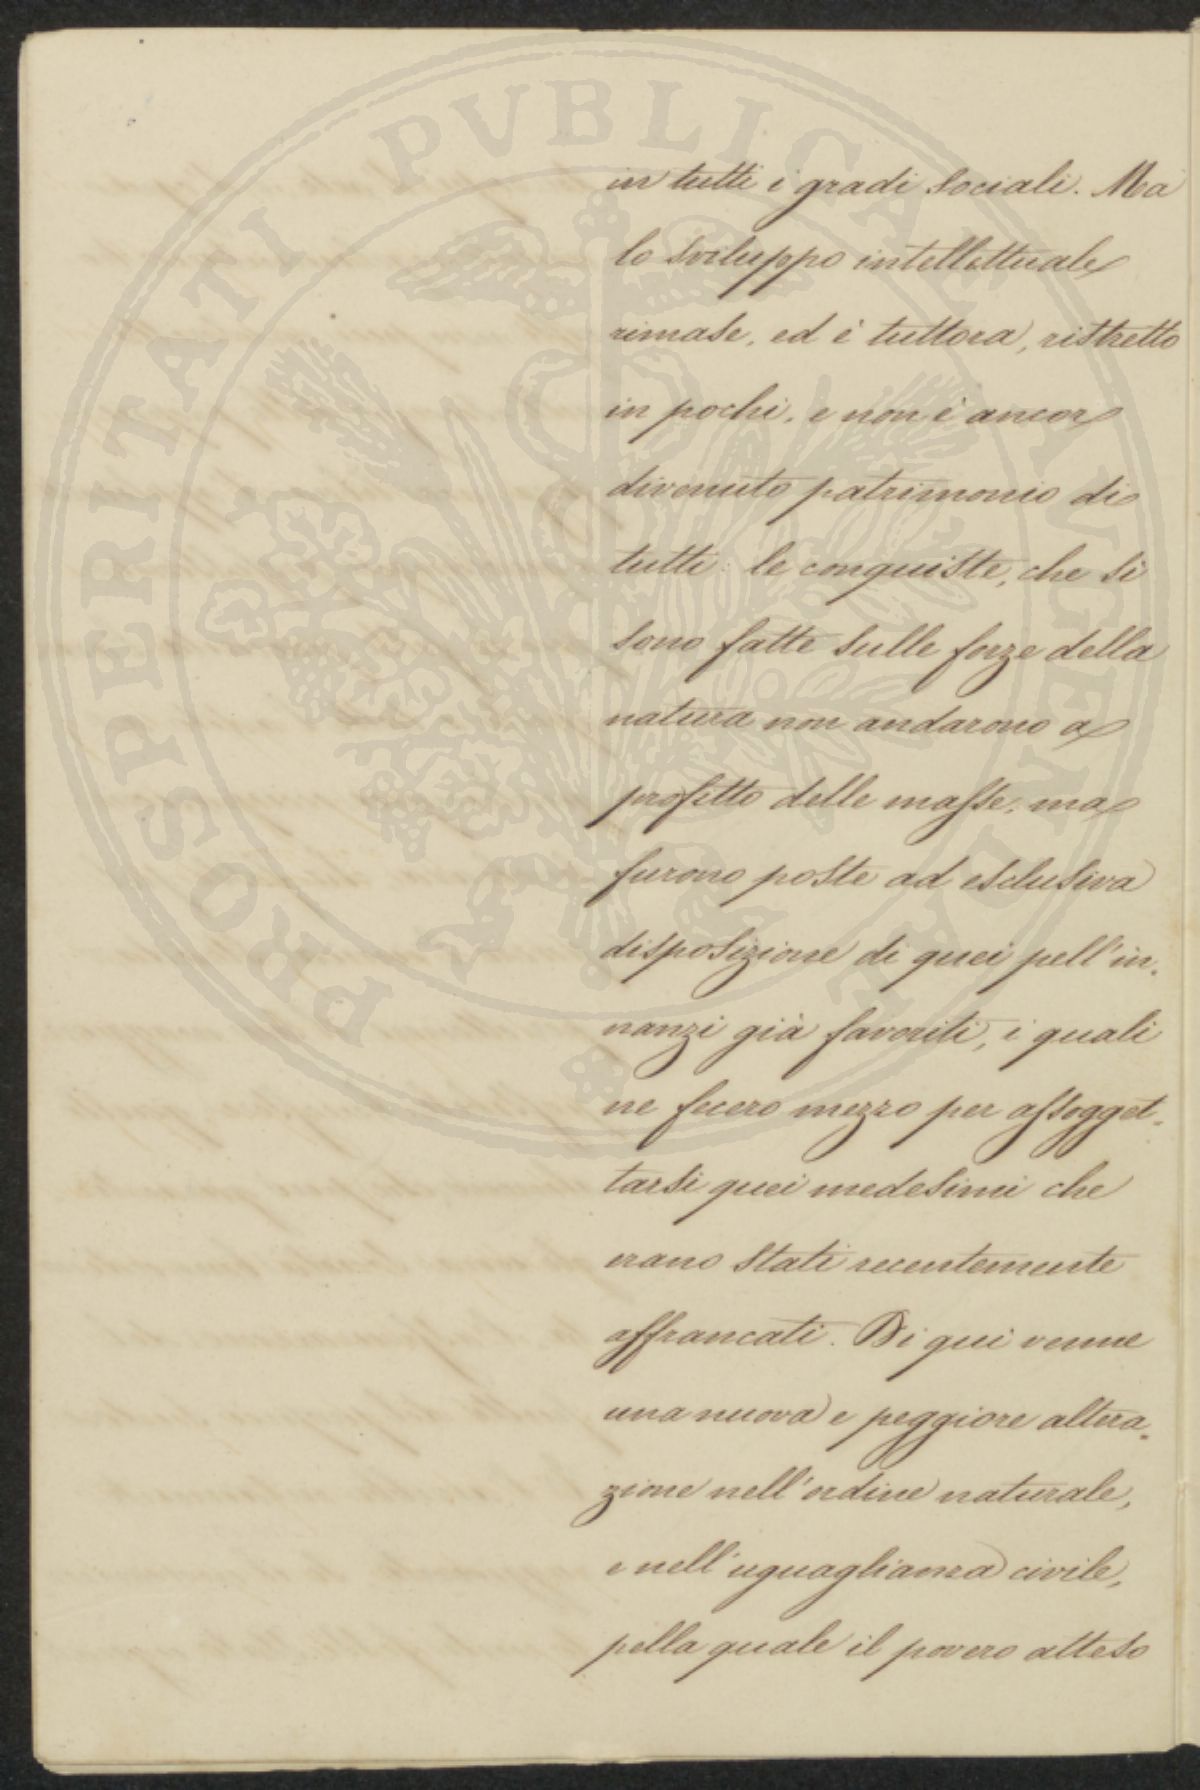 PROSPERITATI PVBLICAE AVGENDAE
in tutti i gradi sociali. Ma
lo sviluppo intellettuale
rimase, ed è tuttora, ristretto
in pochi, e non è ancor
divenuto patrimonio di
tutti: le conquiste, che si
sono fatte sulle forze della
natura non andarono a
profitto delle masse, ma
furono poste ad esclusiva
disposizione di quei pell'in-
nanzi già favoriti, i quali
ne fecero mezzo per assogget-
tarsi quei medesimi che
erano stati recentemente
affrancati. Di qui venne
una nuova e peggiore altera-
zione nell'ordine naturale,
e nell'uguaglianza civile,
pella quale il povero atteso